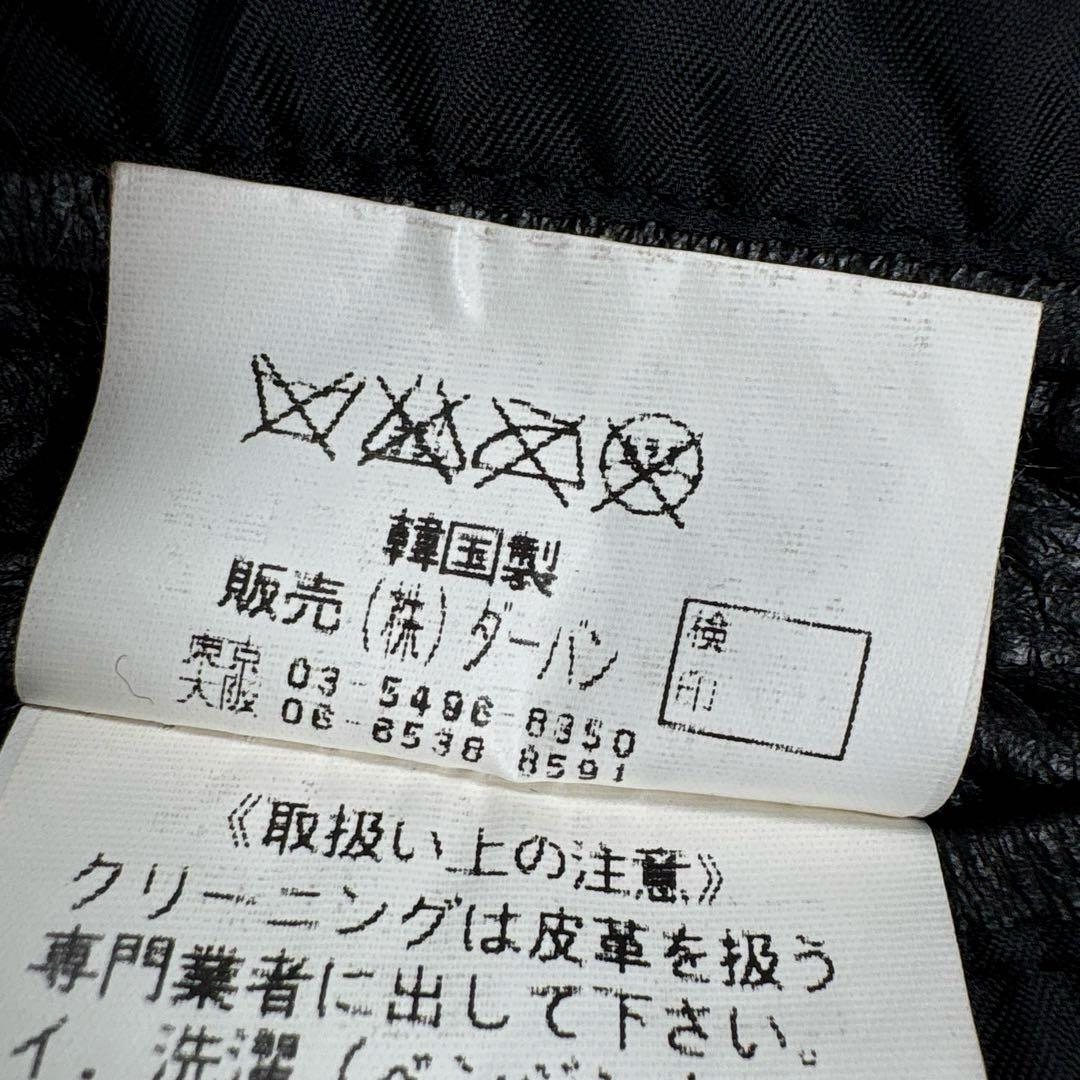 韓国製
販売(株)ダーバン
東京 03-5496-8350
大阪 06-6538-8591
検
印
《取扱い上の注意》
クリーニングは皮革を扱う
専門業者に出して下さい。
イ.洗濯